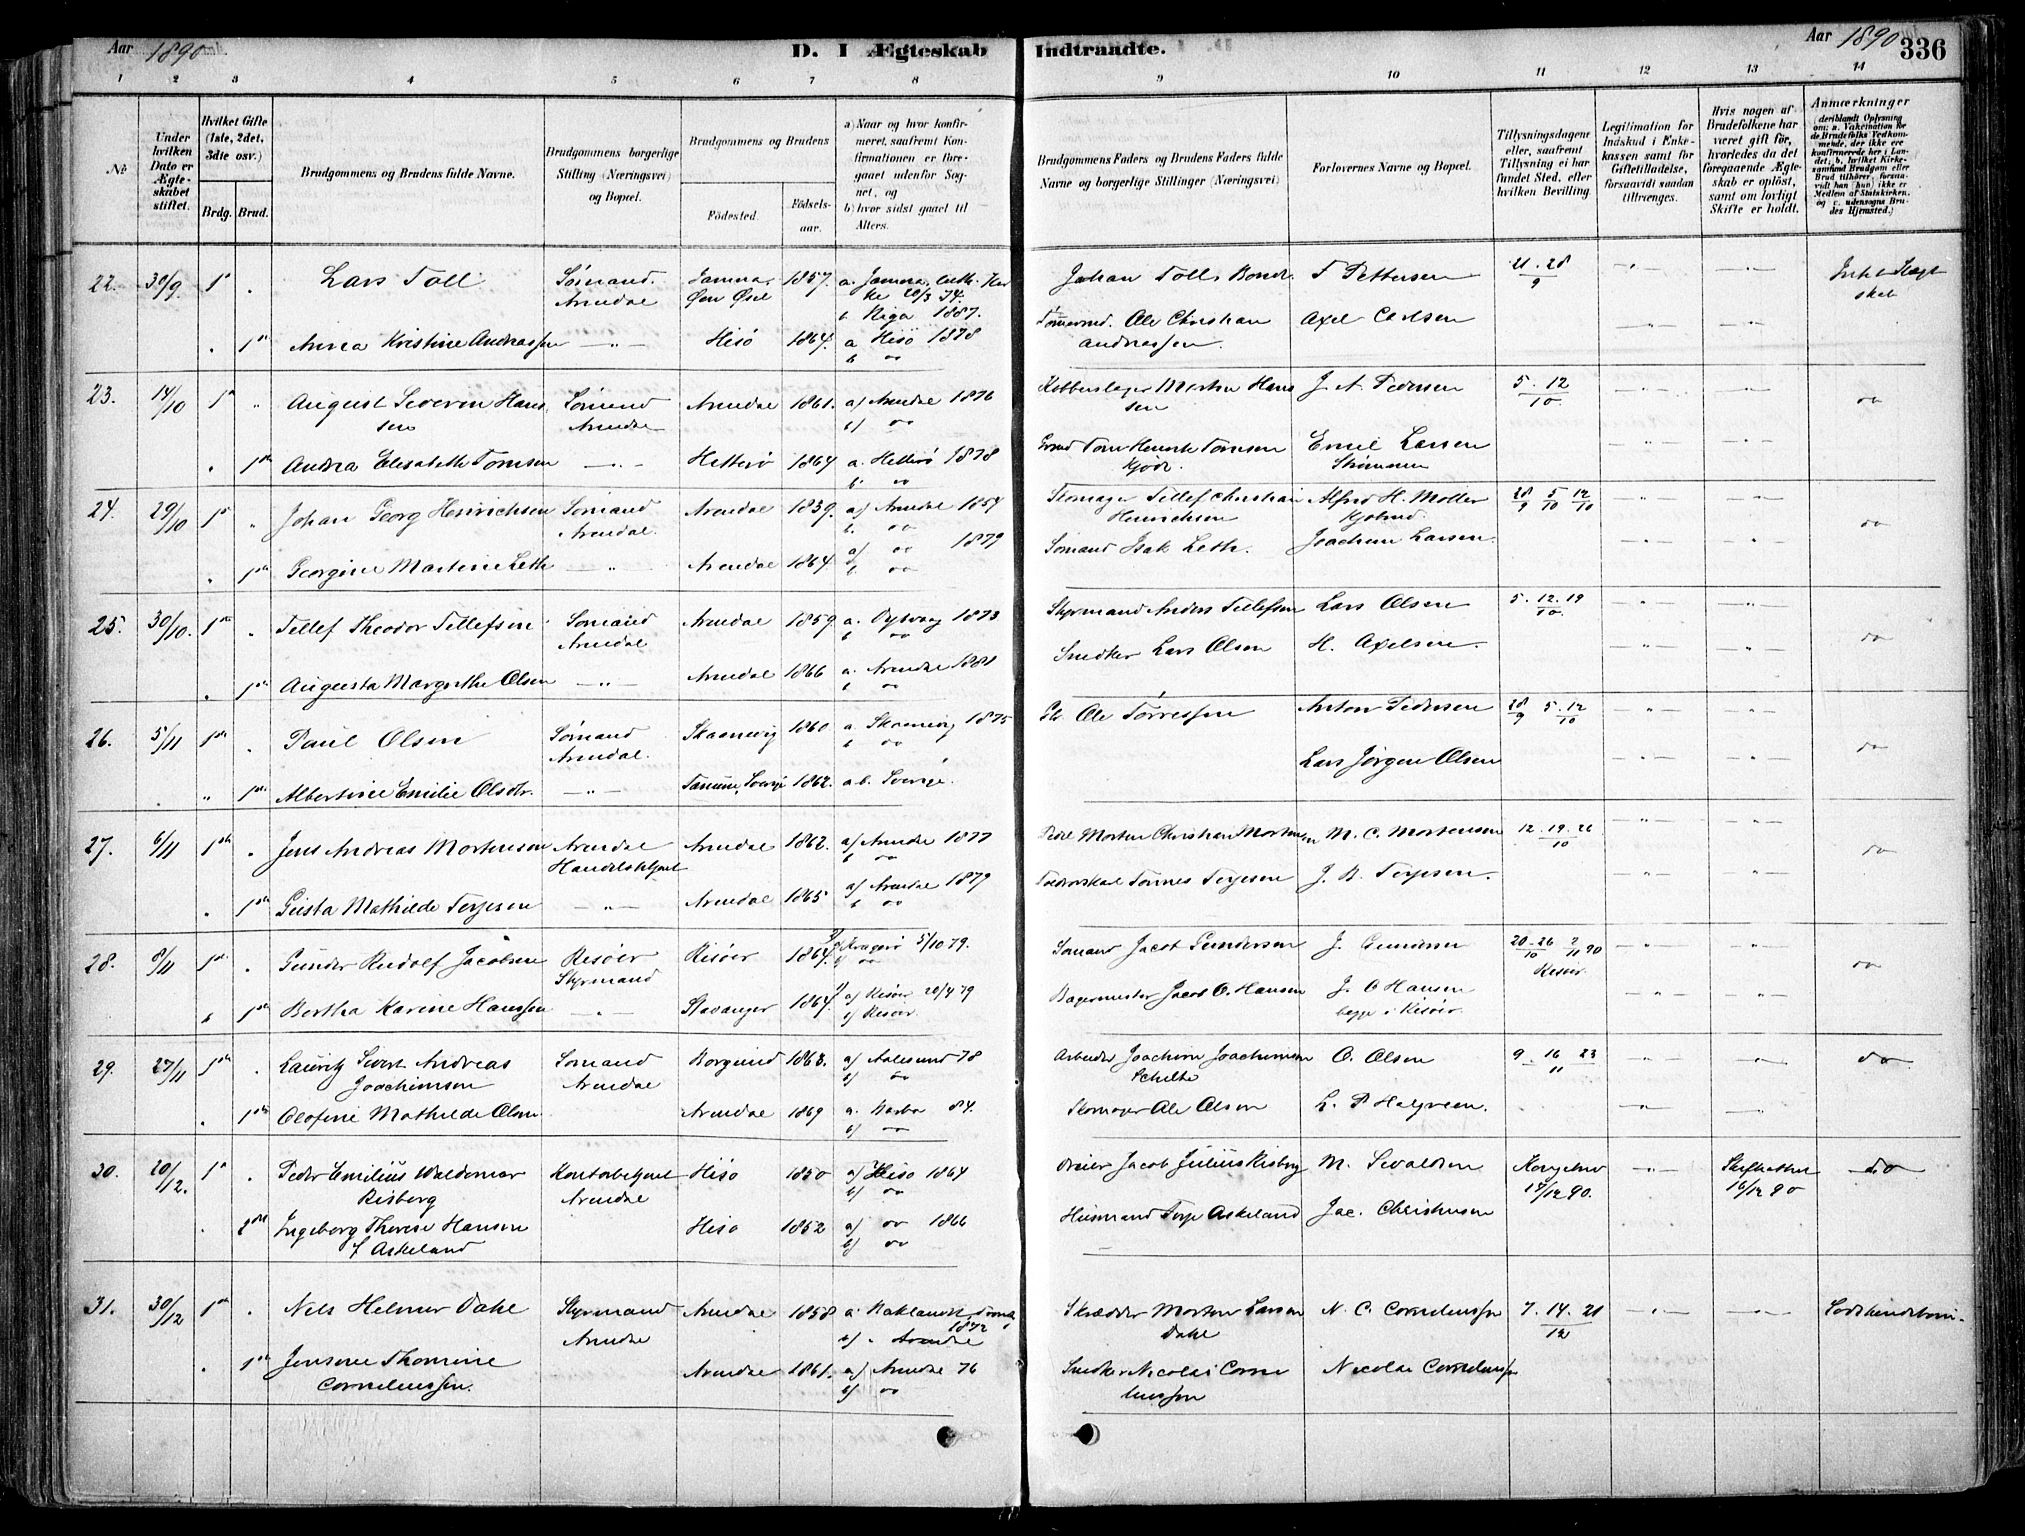 Aar 1890
D. I Ægteskab
Indtraadte.
Aar 1890
336
1 2 3 4 5 6 7 8
9 10 11 12 13 14
№
Under hvilken Dato er Ægteskabet stiftet.
Hvilket Gifte (1ste, 2det, 3die osv.)
Brdg. Brud.
Brudgommens og Brudens fulde Navne.
Brudgommens borgerlige Stilling (Næringsvei) og Bopæl.
Brudgommens og Brudens
Födested.
Födselsaar.
a) Naar og hvor konfirmeret, saafremt Konfirmationen er foregaaet udenfor Sognet, og
b) hvor sidst gaaet til Alters.
Brudgommens Faders og Brudens Faders fulde Navne og borgerlige Stillinger (Næringsvei)
Forlovernes Navne og Bopæl.
Tillysningsdagene eller, saafremt Tillysning ei har fundet Sted, efter hvilken Bevilling.
Legitimation for Indskud i Enkekassen samt for Giftetilladelse, forsaavidt saadan tiltrænges.
Hvis nogen af Brudefolkene har været gift för, hvorledes da det foregaaende Ægteskab er oplöst, samt om lovligt Skifte er holdt.
Anmærkninger
(deriblandt Oplysning om: a. Vakcination for de Brudefolks Vedkommende, der ikke ere konfirmerede her i Landet; b. hvilket Kirkesamfund Brudgom eller Brud tilhörer, forsaavidt han (hun) ikke er Medlem af Statskirken, og c. udensogns Brudes Hjemsted.)
22. 30/9 1ste Lars Toll Sømand. 1857. a. Jamma
Arendal Øen Øsel 20/3 74.
b. Riga 1887.
Johan Toll, Bonde T. Pettersen 21. 28/9
1ste Anna Kristine Andreassen Hisö 1864. a Hisö 1878
b do
Ole Christian Andreassen. Axel Carlsen
23. 14/10 1ste August Severin Hansen Sømand Arendal Arendal 1861. a) Arendal 1876
b) do
Kobberslager Morten Hansen J. A. Pedersen 5. 12/10. do
1ste Andrea Elisabeth Tomsen Hetterö 1864 a. Hetterö 1878
b. do
Tom Henrik Tomsen Emil Larsen
Strömmen
24. 29/10 1ste Johan Georg Henrichsen Sømand Arendal. Arendal 1839. a) Arendal 1854
b. do
Skomager Tellef Christian Henrichsen Alfred H. Möller 28/9 5/10 12/10 do
1ste Georgine Martine Leth Arendal 1864. a) do 1879
b. do
Sømand Isak Leth. Joachim Larsen.
25. 30/10. 1ste Tellef Theodor Tellefsen Sømand Arendal Arendal 1859. a. Dypvaag 1873
b do
Styrmand Anders Tellefsen Lars Olsen 5. 12. 19/10. do
1ste Augusta Margrethe Olsen Arendal 1866 a. Arendal 1881
b do
Snedker Lars Olsen H. Axelsen.
26. 5/11 1ste Paul Olsen Sømand Arendal. Skaanevig 1860 a. Skaanevig 1875
b do
Ole Törressen Anton Pedersen 28/9 5. 12/10 do
1ste Albertine Emilie Olsdtr. Tanum, Sverige 1862. a.b. Sverige.
Lars Jörgen Olsen
27. 6/11 1ste Jens Andreas Mortensen Arendal Handelsbetjent Arendal 1862. a) Arendal 1877
b do
Morten Christian Mortensen M. C. Mortensen 12. 19. 26/10 do
1ste Gusta Mathilde Terjesen Arendal 1865 a) Arendal 1879
b do
Tönnes Terjesen J. B. Terjesen.
28. 8/11 1ste Gunder Rudolf Jacobsen Risöer Styrmand Risöer 1864. a) Kragerö 5/10 79.
b) do
Sømand Jacob Gundersen J. Gundersen 20. 26/10 2/11 90 Risöer do
1ste Bertha Karine Hanssen Stavanger 1864. a) Risöer 20/4 79
b) Risöer.
Bagermester Jacob O. Hansen J. O Hansen
begge i Risöer.
29. 27/11 1ste Lauritz Sivert Andreas Joachimsen Sømand Arendal Borgund 1863. a) Aalesund 78
b) do
Arbeider Joachim Joachimsen Schulte O. Olsen 9. 16 23/11 do
1ste Olefine Mathilde Olsen Arendal 1869 a. Barbo 84.
b) do
Skomager Ole Olsen L. P. Halgreen.
30. 20/12. 1ste Peder Emilius Waldemar Risberg Kontorbetjent Arendal Hisö 1850 a) Hisö 1864
b) do
Dreier Jacob Julius Risberg M. Sevaldsen 17/12 90. Skifteattest 16/12 90 do
2det Ingeborg Therese Hansen f. Askeland Hisö 1852 a) do 1866
b) do
Husmand Terje Askeland Jac. Christensen
31. 30/12 1ste Nils Helmer Dahl Styrmand Arendal Arendal 1858 a. Baklandet 1872
b) Arendal
Skrædder Morten Larsen Dahl N. C. Corneliussen 7. 14. 21/12
1ste Jensine Thomine Corneliussen. Arendal 1861. a) Arendal 76
b) do
Snedker Nicolai Corneliussen Nicolai Corneliussen